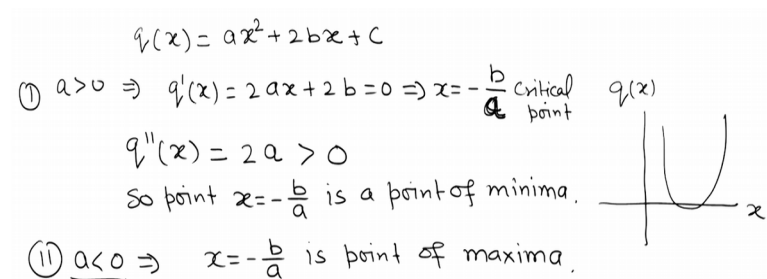 q(x) = ax² + 2bx + c
① a>0 ⇒ q'(x) = 2ax + 2b = 0 ⇒ x = -b/a critical point
q''(x) = 2a > 0
So point x = -b/a is a point of minima.
q(x)
x
② a<0 ⇒ x = -b/a is point of maxima.